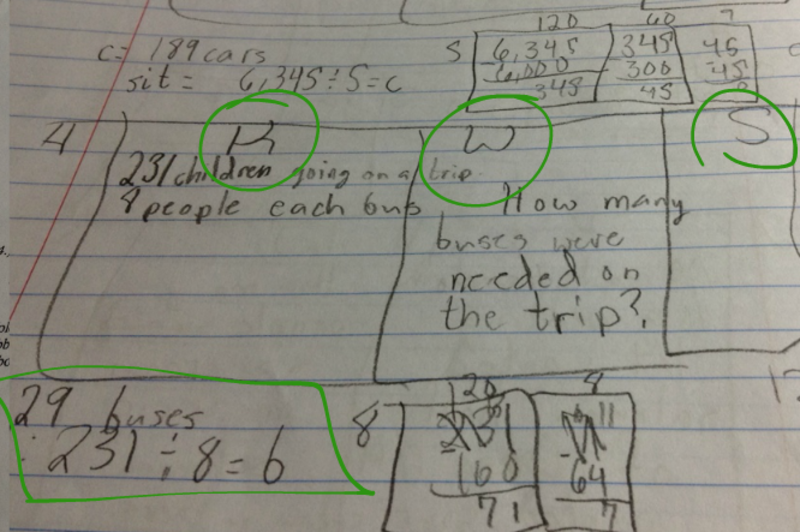 120 60 7
c= 189 cars
sit= 6,345÷5=c
5 6,345 345 45
-6,000 -300 -45
345 45 0
4
K W S
231 children going on a trip
8 people each bus
How many
buses were
needed on
the trip?
29 buses
231÷8=b
20 8
8 231
160 64
71 7